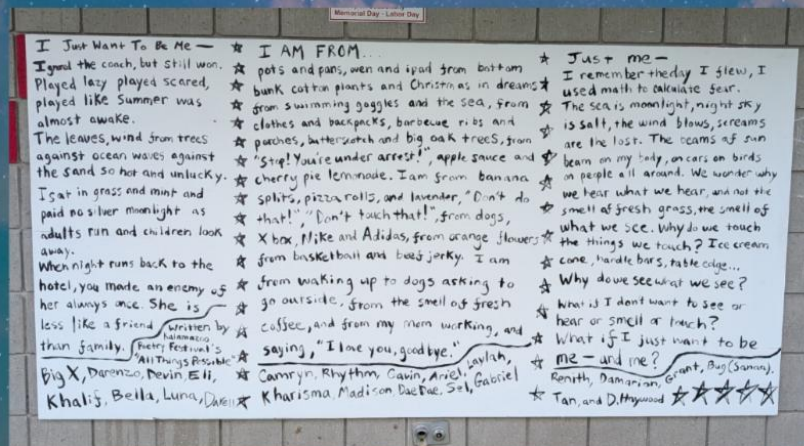 Memorial Day - Labor Day
I Just Want To Be Me —
Ignored the coach, but still won.
Played lazy played scared,
played like Summer was
almost awake.
The leaves, wind from trees
against ocean waves against
the sand so hot and unlucky.
I sat in grass and mint and
paid no silver moonlight as
adults run and children look
away.
When night runs back to the
hotel, you made an enemy of
her always once. She is
less like a friend
than family.
Written by
Kalamazoo
Poetry Festival's
"All Things Possible"
Big X, Darenzo, Devin, Eli,
Khalif, Bella, Luna,
I AM FROM...
pots and pans, wen and ipad from bottom
bunk cotton plants and Christmas in dreams
from swimming goggles and the sea, from
clothes and backpacks, barbecue ribs and
porches, butterscotch and big oak trees, from
"Stop! You're under arrest!", apple sauce and
cherry pie lemonade. I am from banana
splits, pizza rolls, and lavender, "Don't do
that!" "Don't touch that!", from dogs,
Xbox, Nike and Adidas, from orange flowers
from basketball and beef jerky. I am
from waking up to dogs asking to
go ourside, from the smell of fresh
coffee, and from my mom working, and
saying, "I love you, goodbye."
Camryn, Rhythm, Gavin, Ariel, Laylah,
Kharisma, Madison, DaeDae, Sel, Gabriel
Just me —
I remember the day I flew, I
used math to calculate fear.
The sea is moonlight, night sky
is salt, the wind blows, screams
are the lost. The teams of sun
beam on my body, on cars on birds
on people all around. We wonder why
we hear what we hear, and not the
smell of fresh grass, the smell of
what we see. Why do we touch
the things we touch? Ice cream
cone, handle bars, table edge...
Why do we see what we see?
What if I don't want to see or
hear or smell or touch?
What if I just want to be
me — and me?
Renith, Damarian, Grant, Bug (Samari),
Tan, and D. Haywood